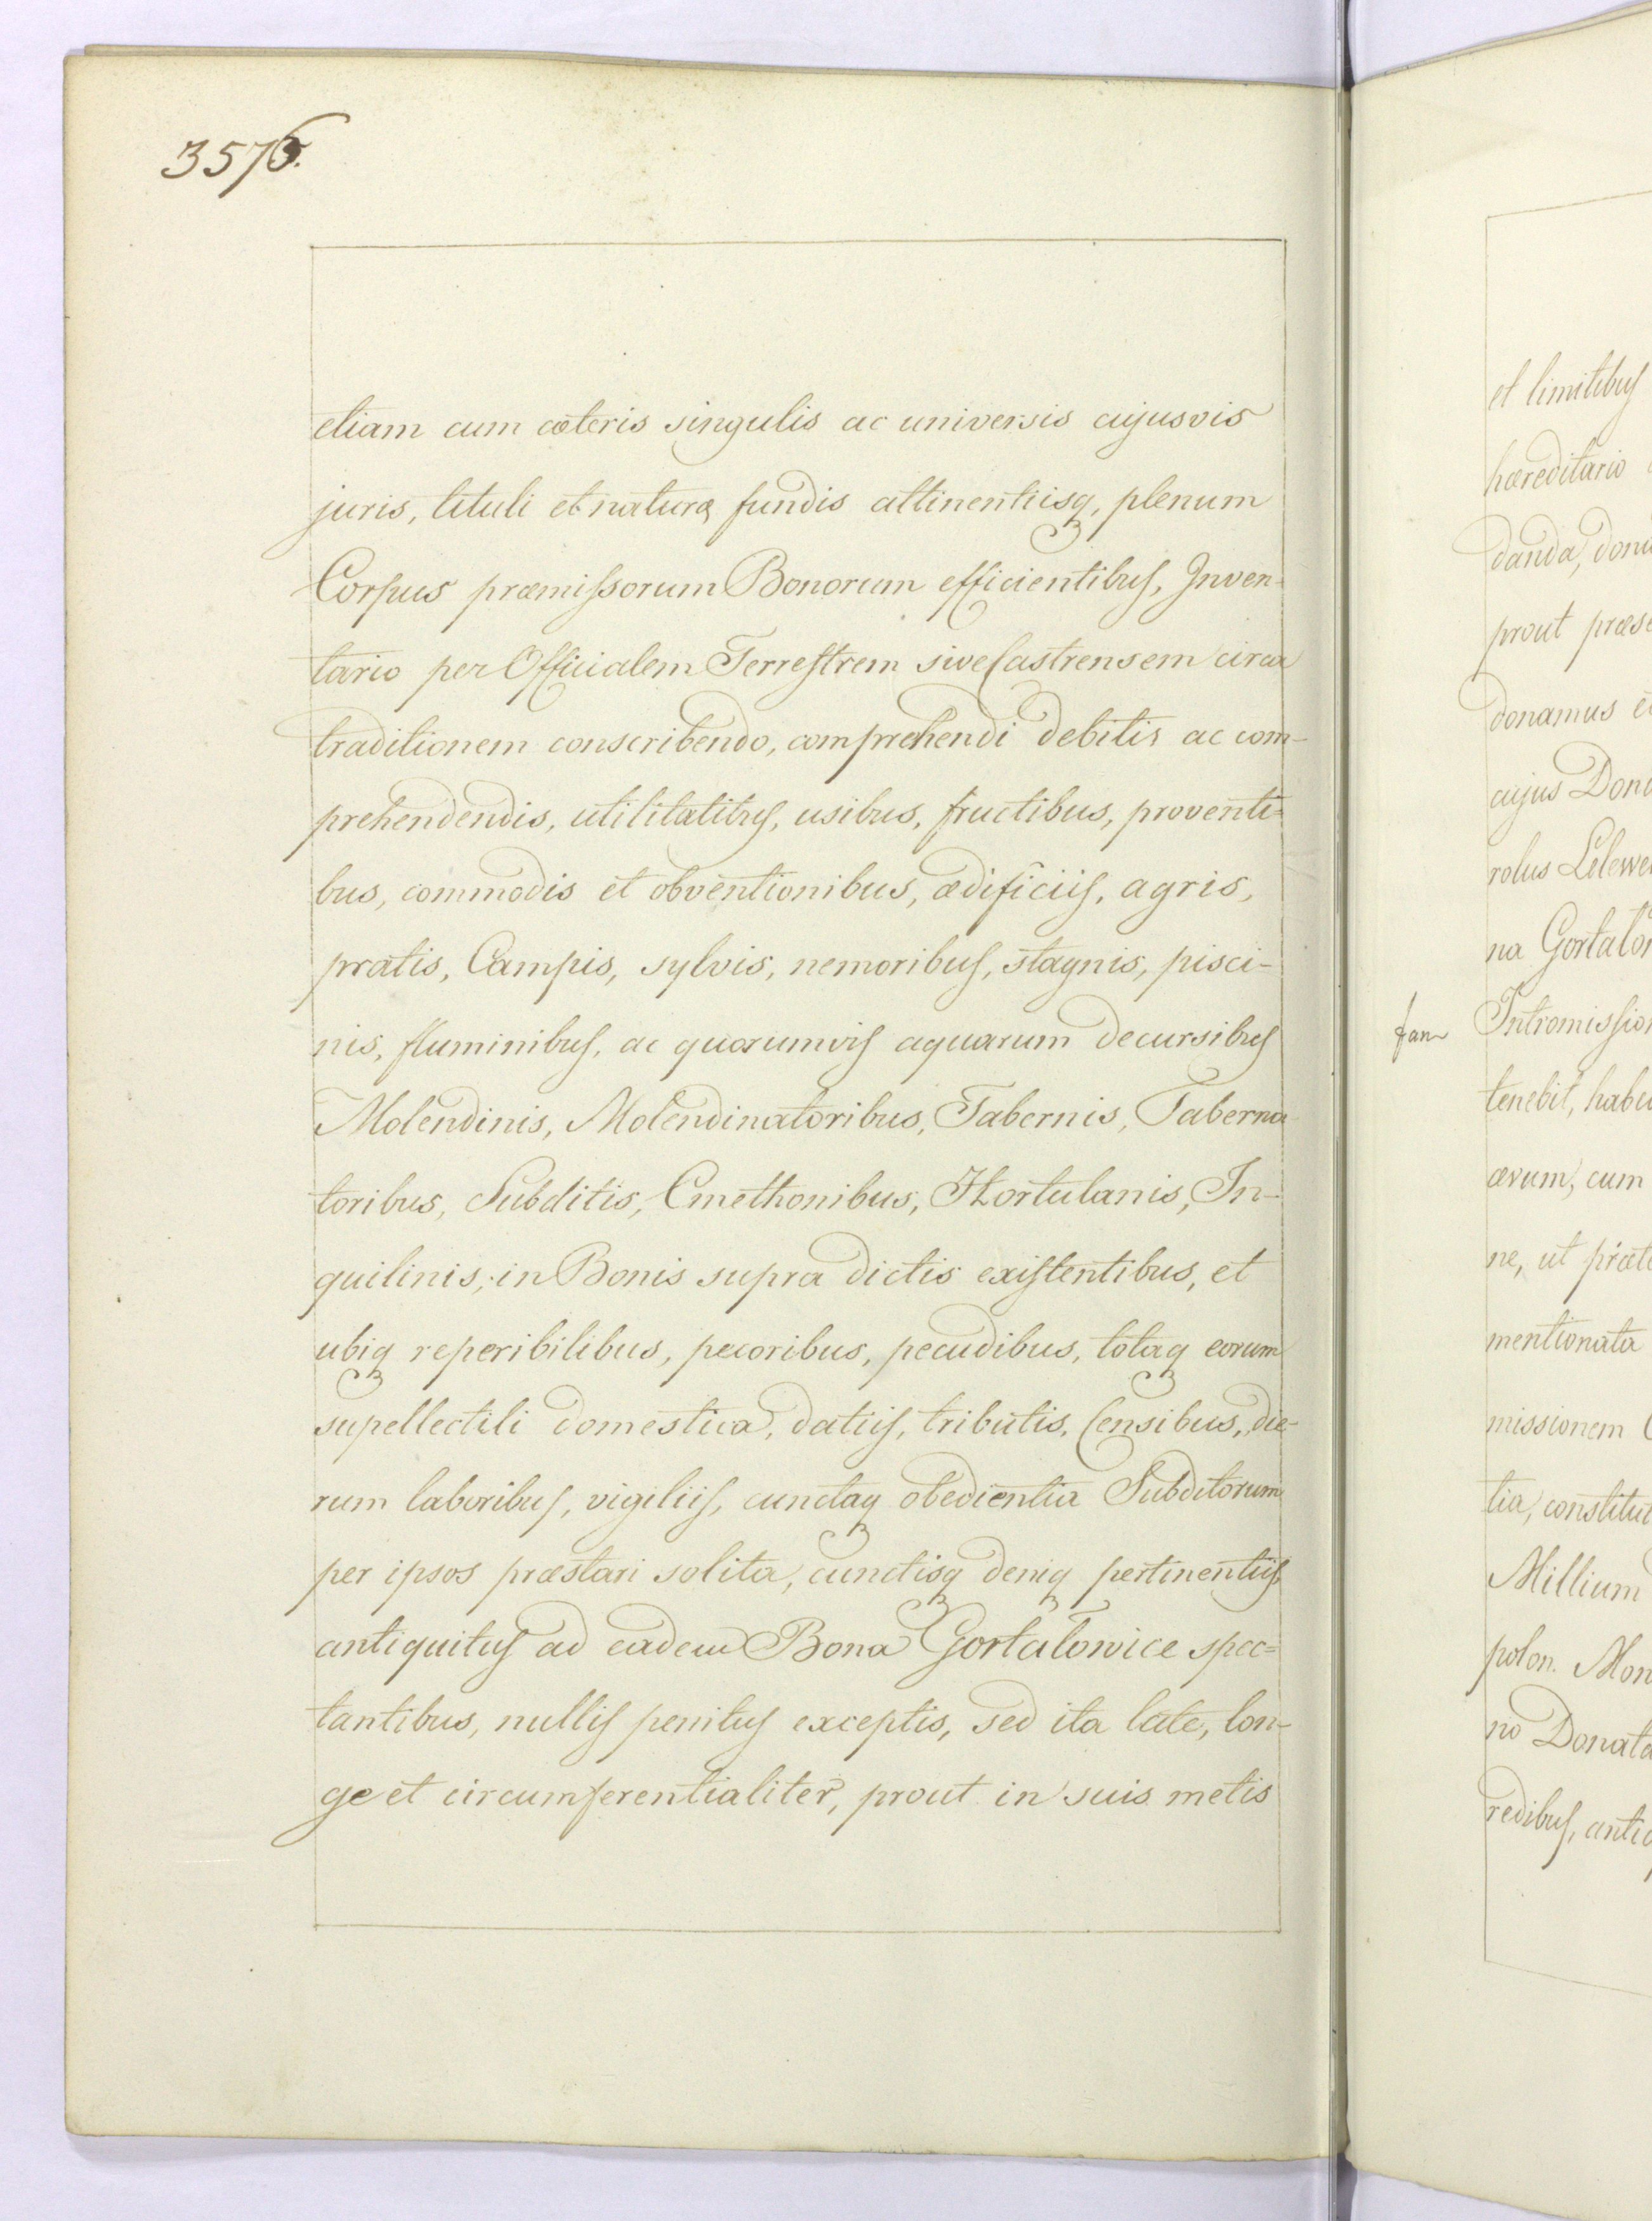 3576.
etiam cum cæteris singulis ac universis cujusvis
juris, tituli et naturæ fundis attinentiisq, plenum
Corpus præmissorum Bonorum efficientibus, Inven-
tario per Officialem Terrestrem sive Castrensem circa
traditionem conscribendo, comprehendi debitis ac com-
prehendendis, utilitatibus, usibus, fructibus, proventi-
bus, commodis et obventionibus, ædificiis, agris,
pratis, Campis, sylvis, nemoribus, stagnis, pisci-
nis, fluminibus, ac quorumvis aquarum decursibus
Molendinis, Molendinatoribus, Tabernis, Taberna-
toribus, Subditis, Cmethonibus, Hortulanis, In-
quilinis, in Bonis supra dictis existentibus, et
ubiq reperibilibus, pecoribus, pecudibus, totaq eorum
supellectili domestica, datiis, tributis, Censibus, die-
rum laboribus, vigiliis, cunctaq obedientia Subditorum
per ipsos præstari solita, cunctisq deniq pertinentiis
antiquitus ad eadem Bona Gortatowice spec=
tantibus, nullis penitus exceptis, sed ita late, lon-
ge et circumferentialiter, prout in suis metis
et limitibus
hæreditario
danda,
prout
donamus
cujus
rolus
na
tenebit,
ævum, cum
ne, ut
mentionata
missionem
tia,
Millium
polon.
no
redibus,